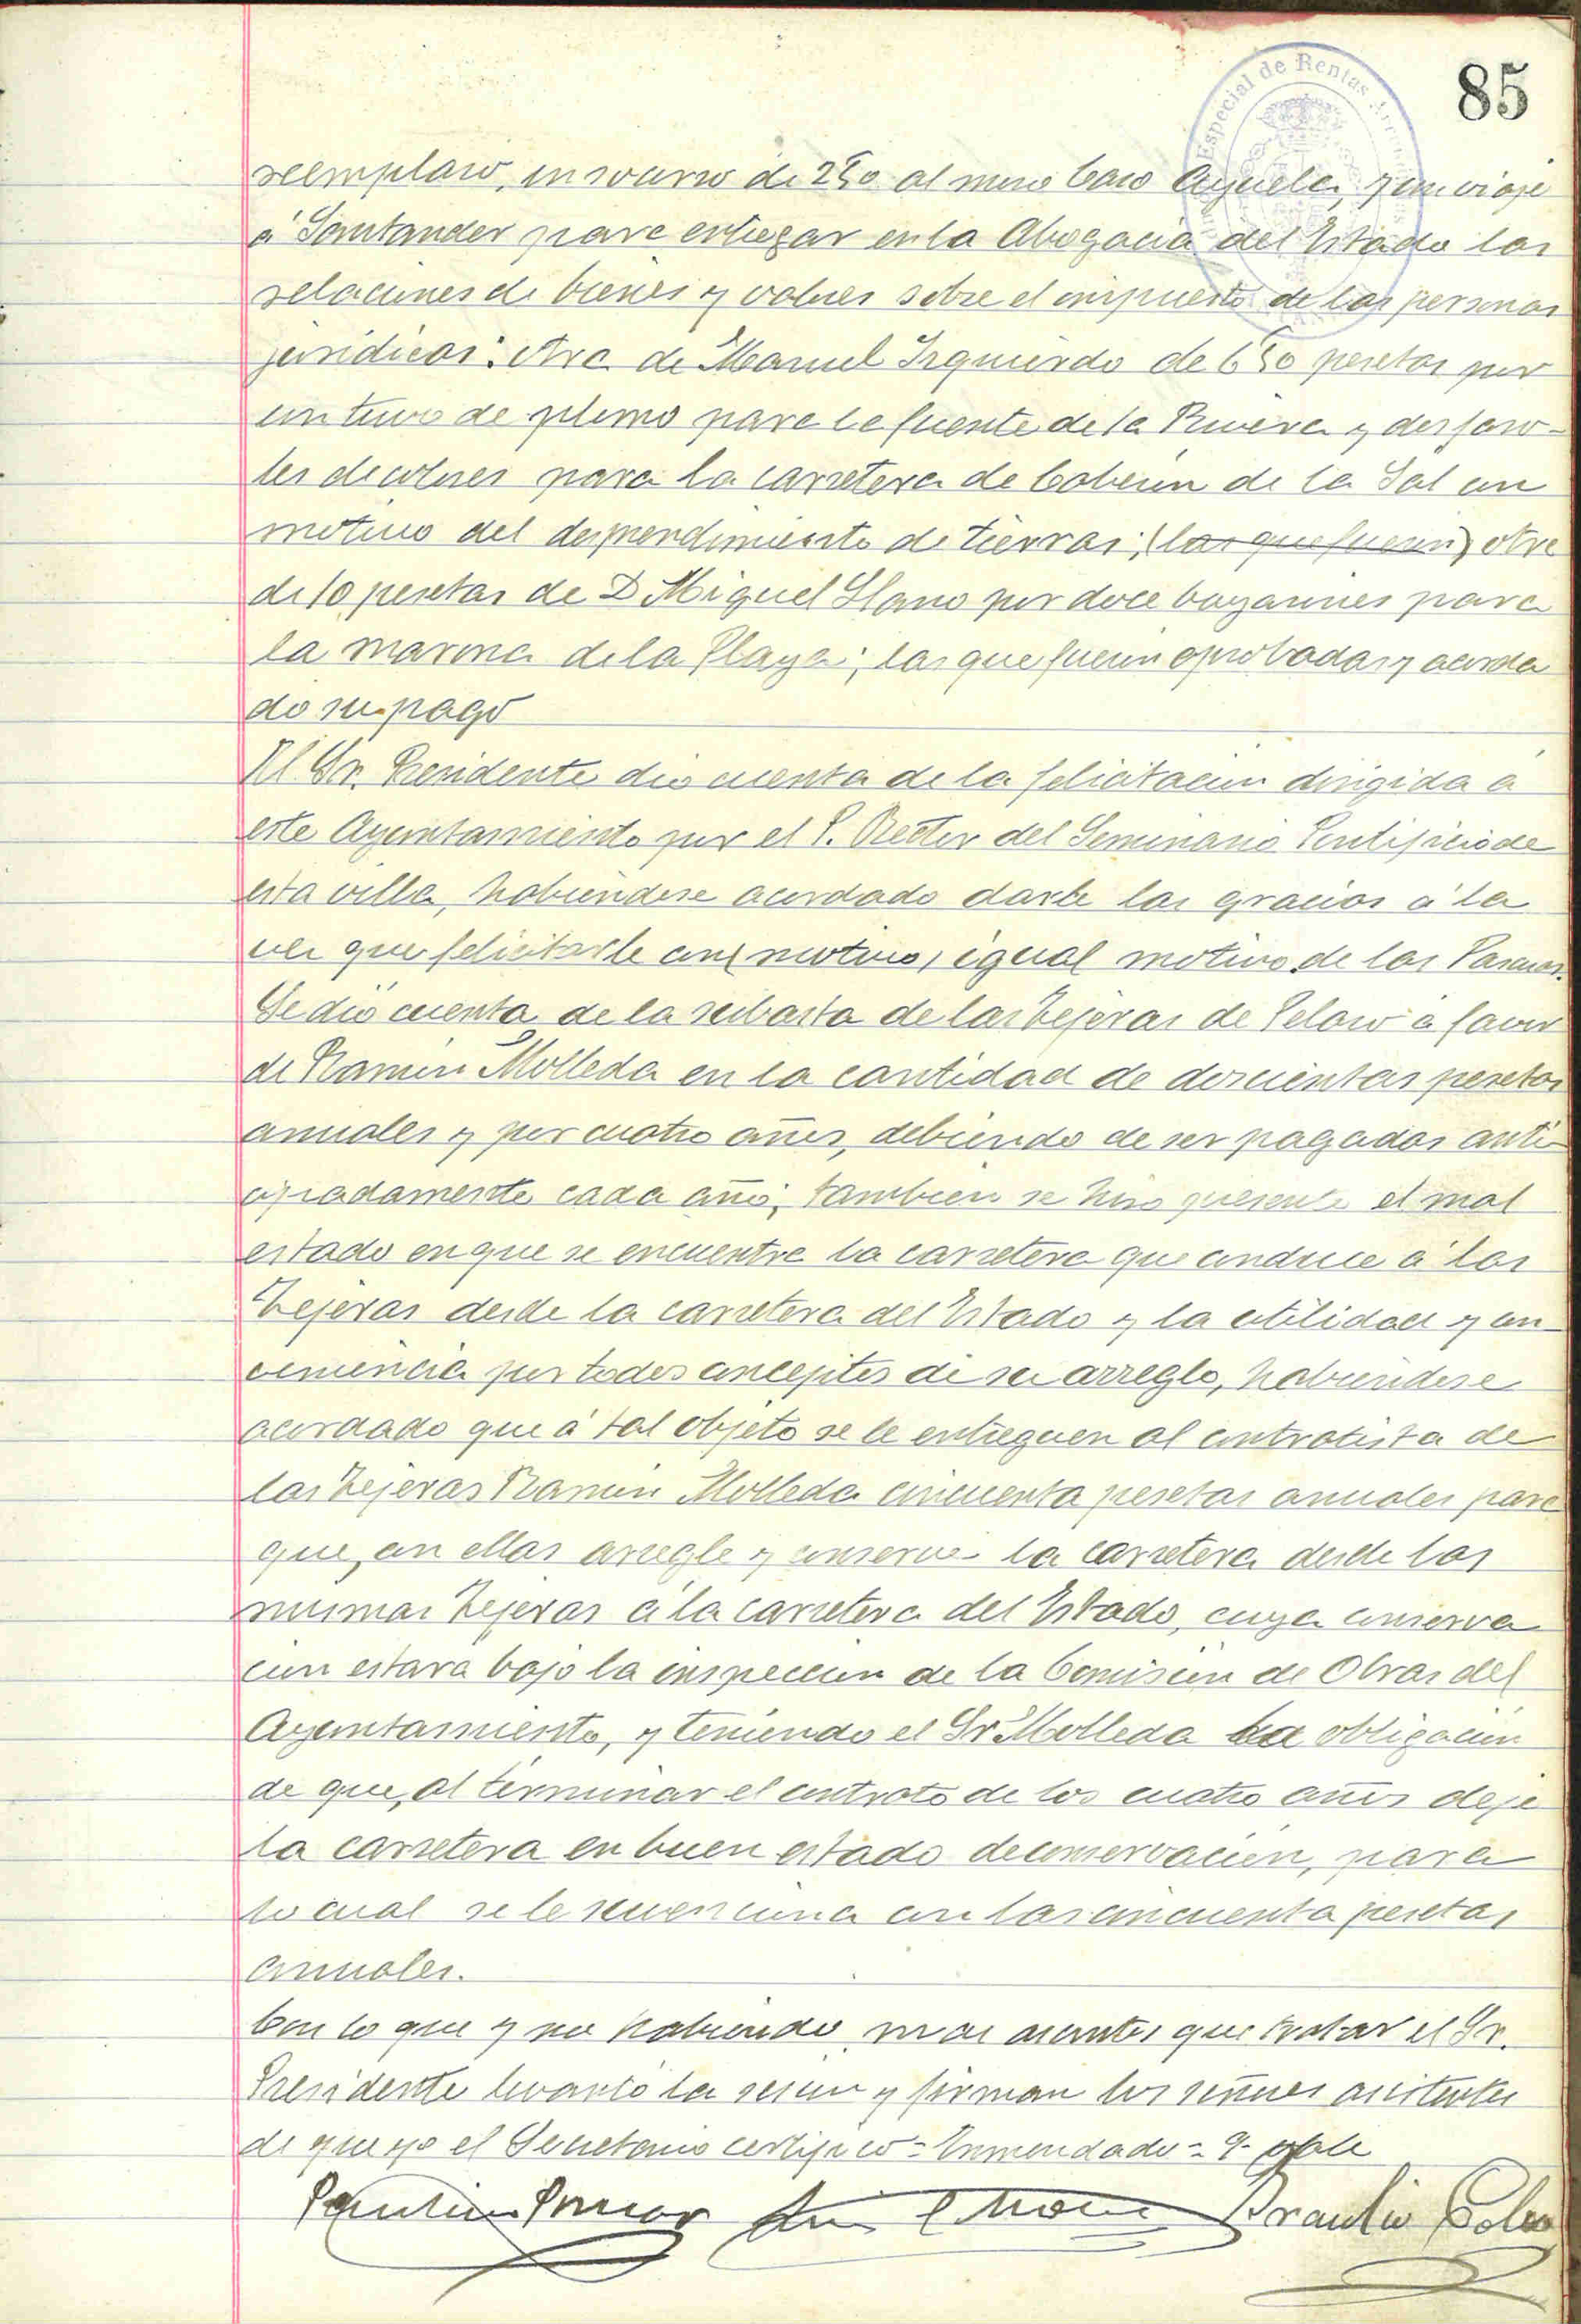 85
Especial de Rentas
reemplazo, un socorro de 2'50 al mozo Caso Ayuela, y un viaje
á Santander para entregar en la Abogacia del Estado las
relaciones de bienes y valores sobre el impuesto de las personas
juridicas: otra de Manuel Izquierdo de 6'50 pesetas por
un tuvo de plomo para la fuente de la y dos faro-
les de colores para la carretera de Caborin de la Sal con
motivo del desprendimiento de tierras; (las que fueron) otra
de 10 pesetas de D Miguel Llano por doce para
la marina de la Playa; las que fueron aprobadas y acorda
do su pago
El Sr. Presidente dio cuenta de la felicitacion dirigida á
este Ayuntamiento por el P. Rector del Seminario Pontificio de
esta villa, habiendose acordado darle las gracias á la
vez que felicitarle con motivo, igual motivo de las Pascuas.
Se dio cuenta de la subasta de las Tejeras de á favor
de Ramón Molleda en la cantidad de doscientas pesetas
anuales y por cuatro años, debiendo de ser pagadas anti-
cipadamente cada año; tambien se hizo presente el mal
estado en que se encuentra la carretera que conduce á las
Tejeras desde la carretera del Estado y la utilidad y con
veniencia por todos conceptos de su arreglo, habiendose
acordado que á tal objeto se le entreguen al contratista de
las Tejeras Ramón Molleda cincuenta pesetas anuales para
que, con ellas arregle y conserve la carretera desde las
mismas Tejeras á la carretera del Estado, cuya conserva
cion estara bajo la inspeccion de la Comision de Obras del
Ayuntamiento, y teniendo el Sr Molleda la obligacion
de que, al terminar el contrato de los cuatro años deje
la carretera en buen estado de conservacion, para
lo cual se le con las cincuenta pesetas
anuales.
Con lo que y no habiendo mas asuntos que tratar el Sr.
Presidente levantó la sesion y firman los señores asistentes
de que yo el Secretario certifico = Enmendado = 9 = vale
Braulio